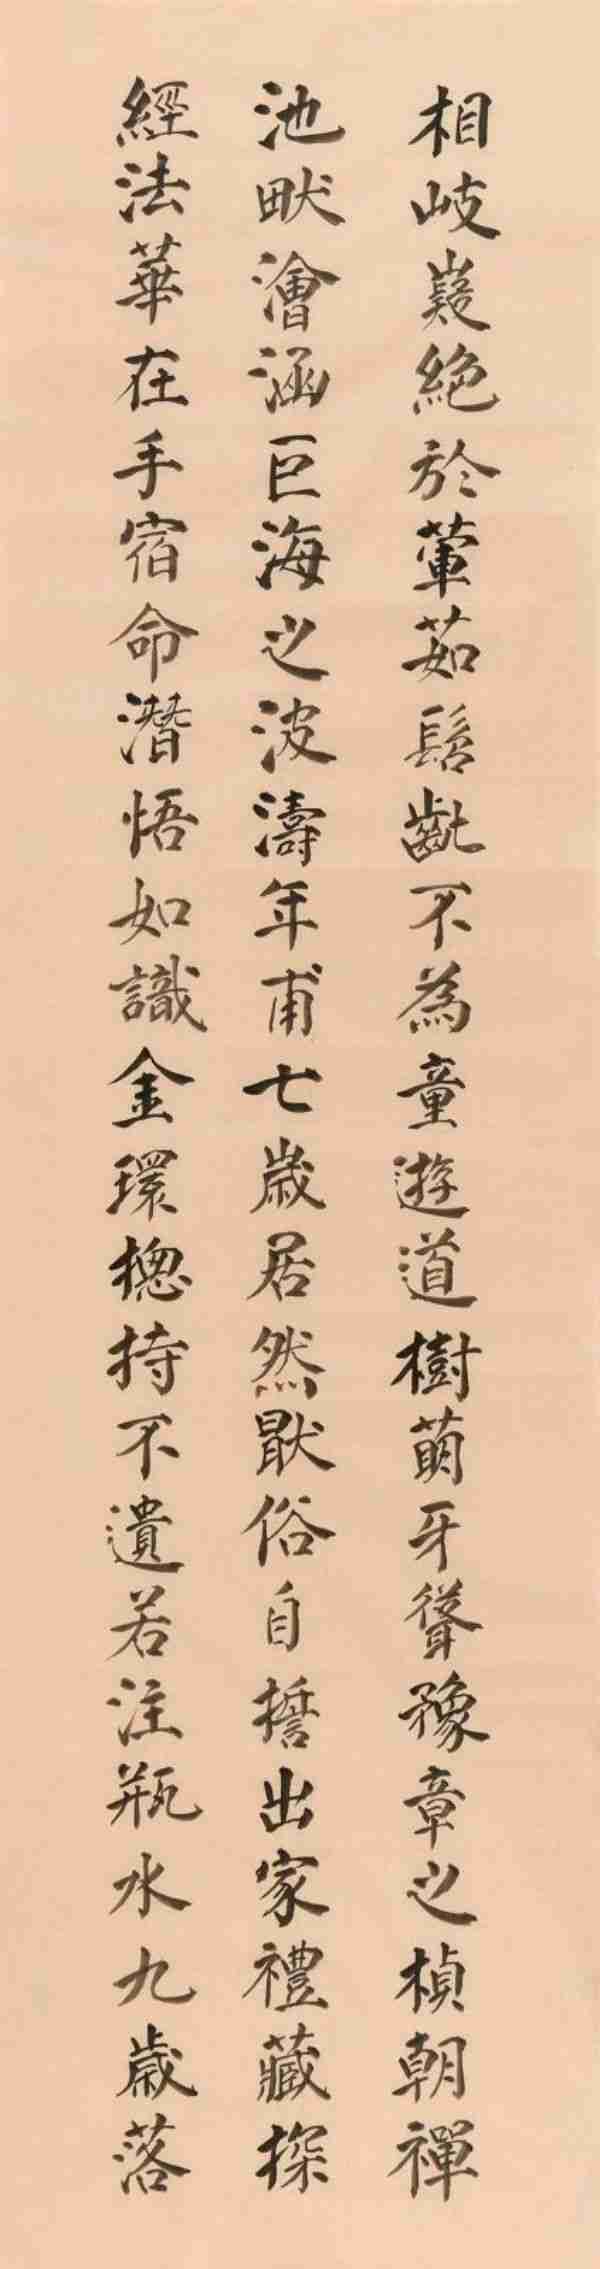 相岐嶷絕於葷茹髫齔不為童遊道樹萌牙聳豫章之楨朝禪
池畎澮涵巨海之波濤年甫七歲居然猒俗自擔出家禮藏探
經法華在手宿命潛悟如識金環揔持不遺若注瓶水九歲落